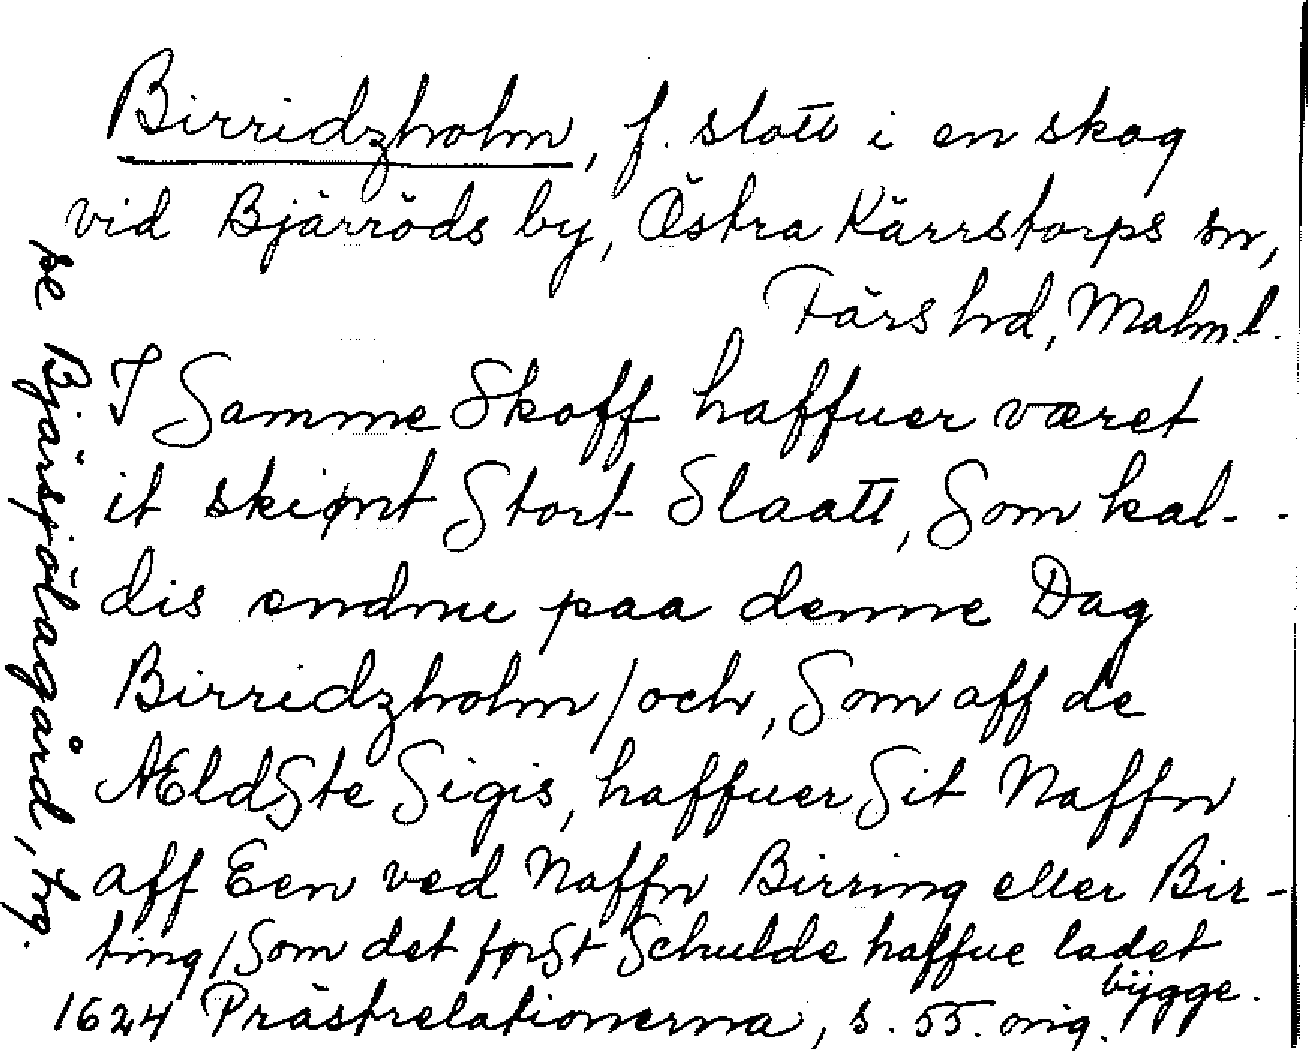 Birridzholm, f. slott i en skog
vid Bjärröds by, Östra Kärrstorps sn,
Färs hrd, Malm.l.
I Samme Skoff haffuer været
it skiønt Stort Slaatt, Som kal-
dis endnu paa denne Dag
Birridzholm / och, Som aff de
ÆldSte Sigis, haffuer Sit Naffn
aff Een ved Naffn Birring eller Bir-
ting / Som detførSt Schulde haffue ladet
bÿgge.
1624 Prästrelationerna, s. 55. orig.
se Bjärsjölagård, hg.